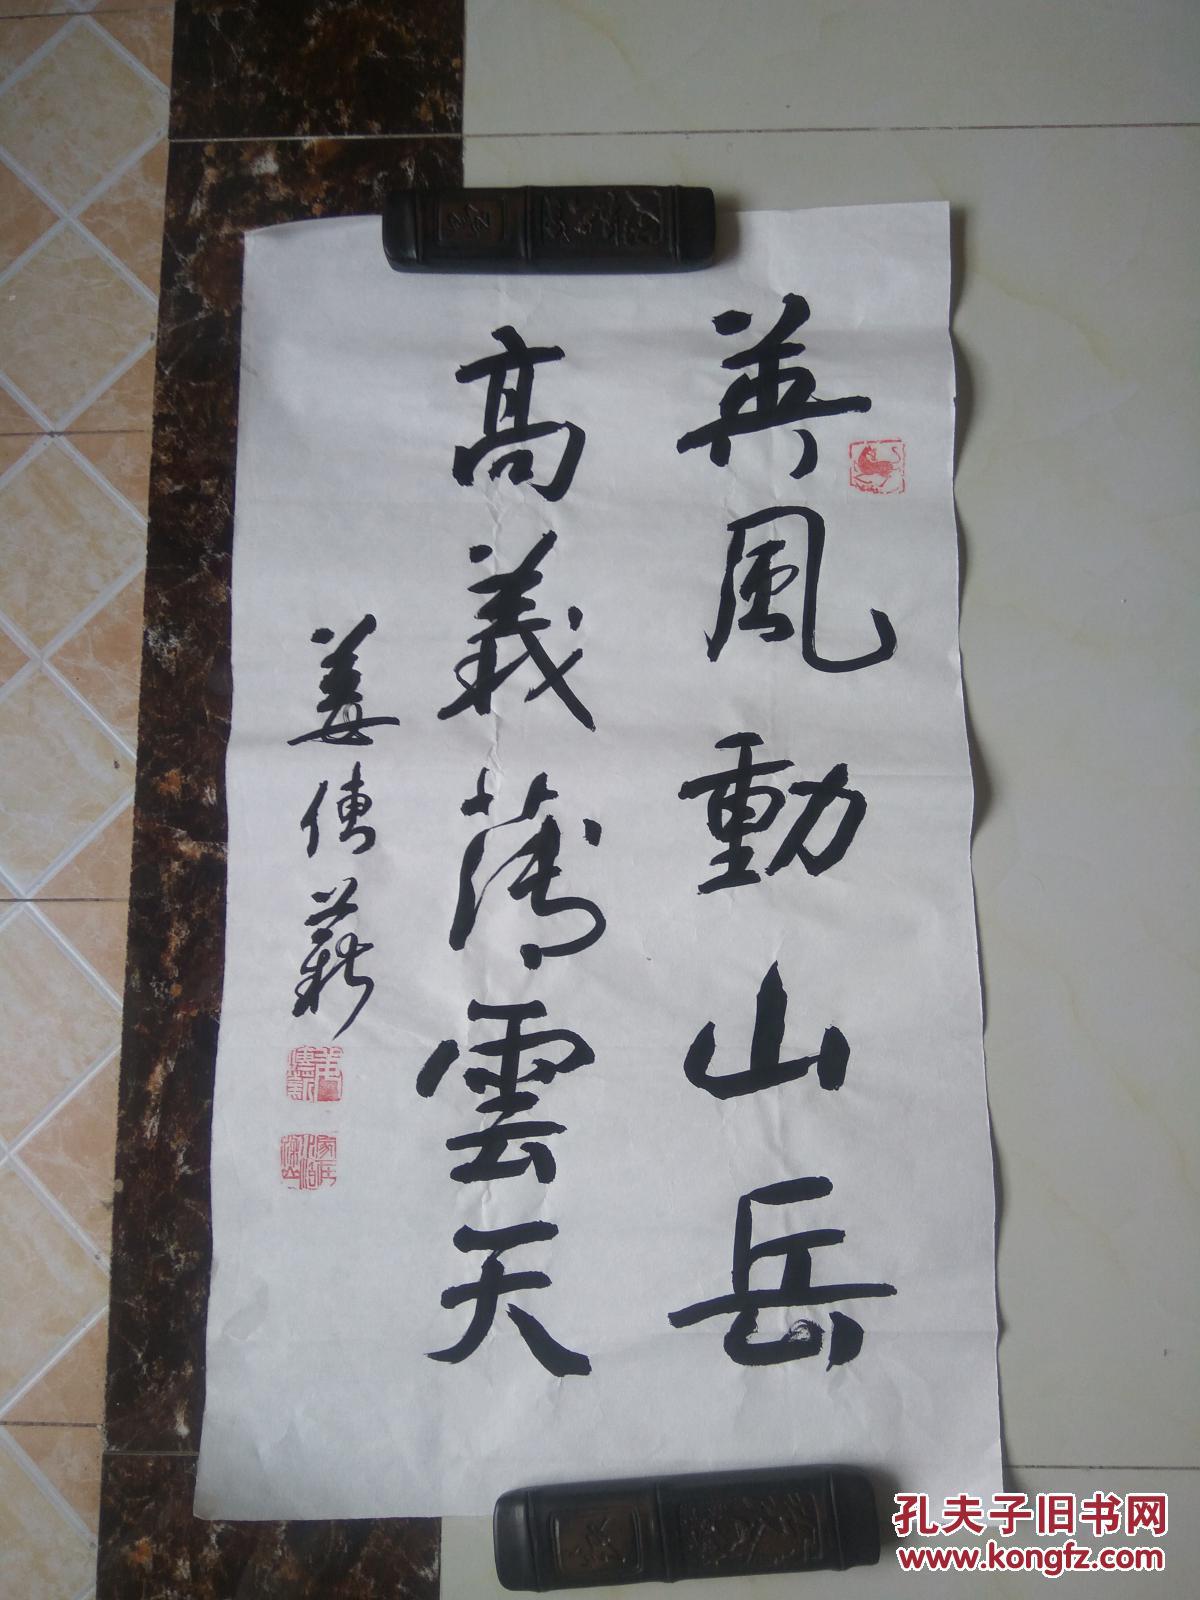 英風動山岳
高義薄雲天
姜傳薪
孔夫子旧书网
www.kongfz.com